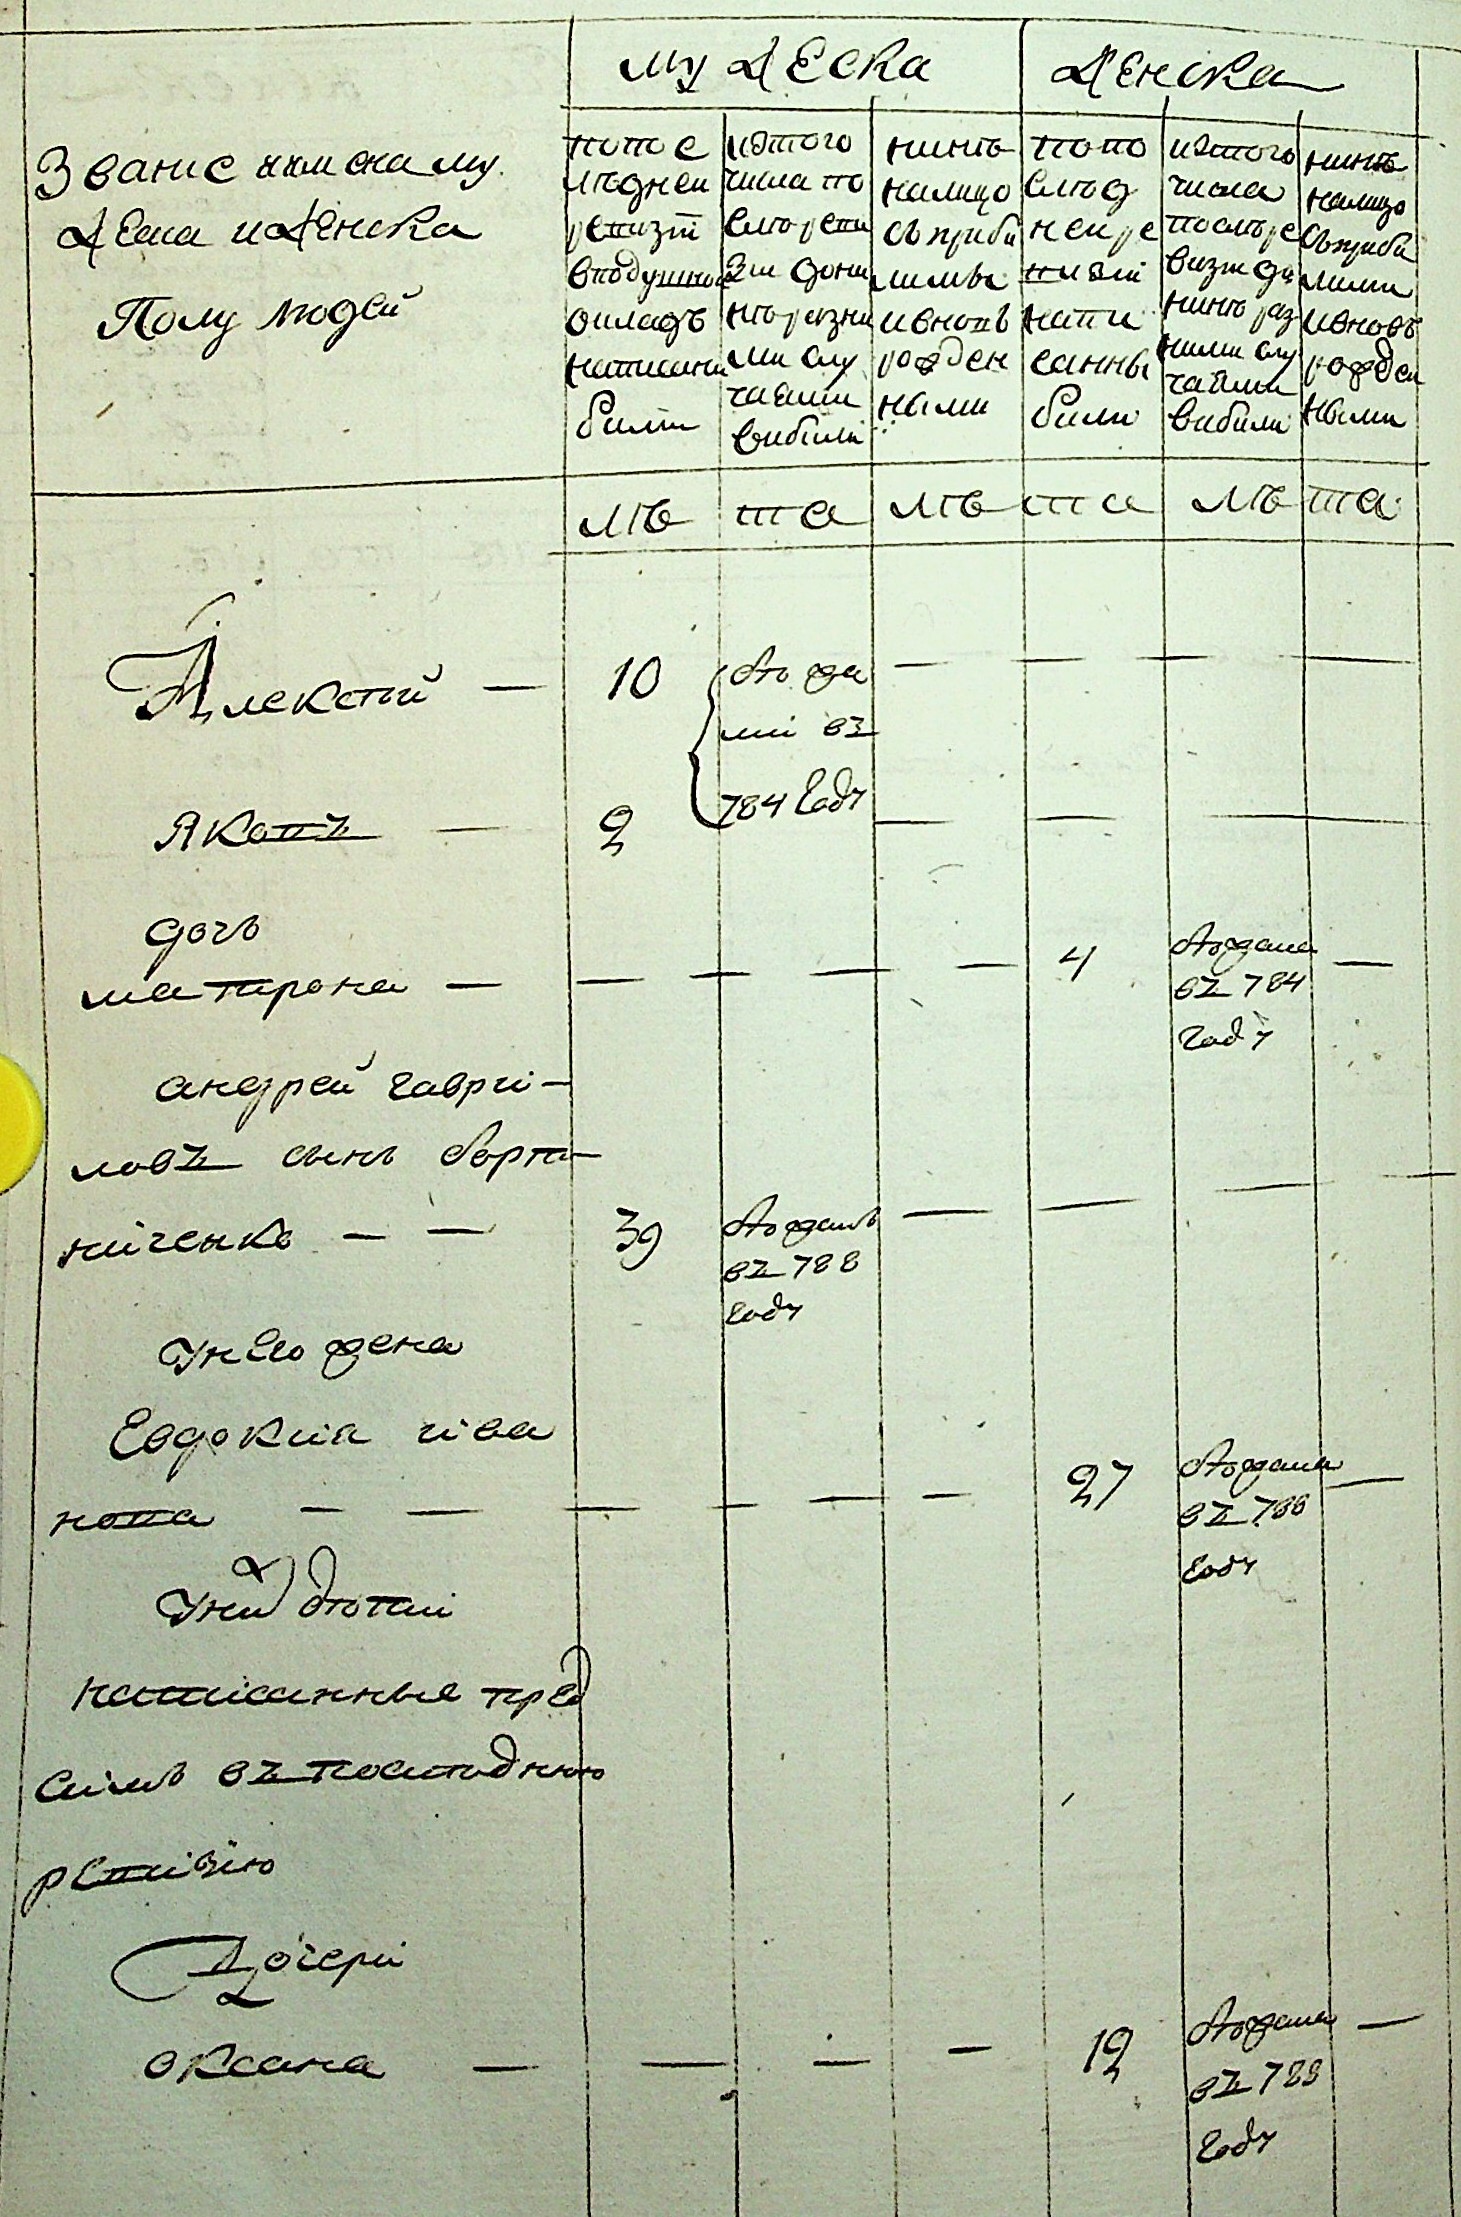 мужеска женска
Званіе имена му
жеска и женска
Полу людей
по пос
лѣдней
ревизіи
в подушной
окладъ
написани
были
из того
числа по
слѣ реви
зіи до ни
нѣ разни
ми слу
чаями
вибили
нинѣ
налицо
съ приби
лими
и вновь
рожден
ными
по по
слѣд
ней ре
визіи
напи
санны
били
из того
числа
послѣ ре
визіи до
нинѣ раз
ними слу
чаями
вибили
нинѣ
налицо
съ приби
лими
и вновь
рожден
ными
лѣ та лѣ та лѣ та
Алексѣй — 10 { — — — —
въ
784 году
Яковъ — 2 — — —
дочь
матрона — — — — — 4 — 
въ 784
году
андрей гаври–
ловъ сынъ борт–
ниченко — — 39 — — — —
въ 788
году
у него жена
Евдокия ива
нова — — — — — — 27 —
въ 788
году
у них дѣти
написанные пред
симъ въ последнюю
ревизію
Дочери
оксана — — — — 12 —
въ 788
году